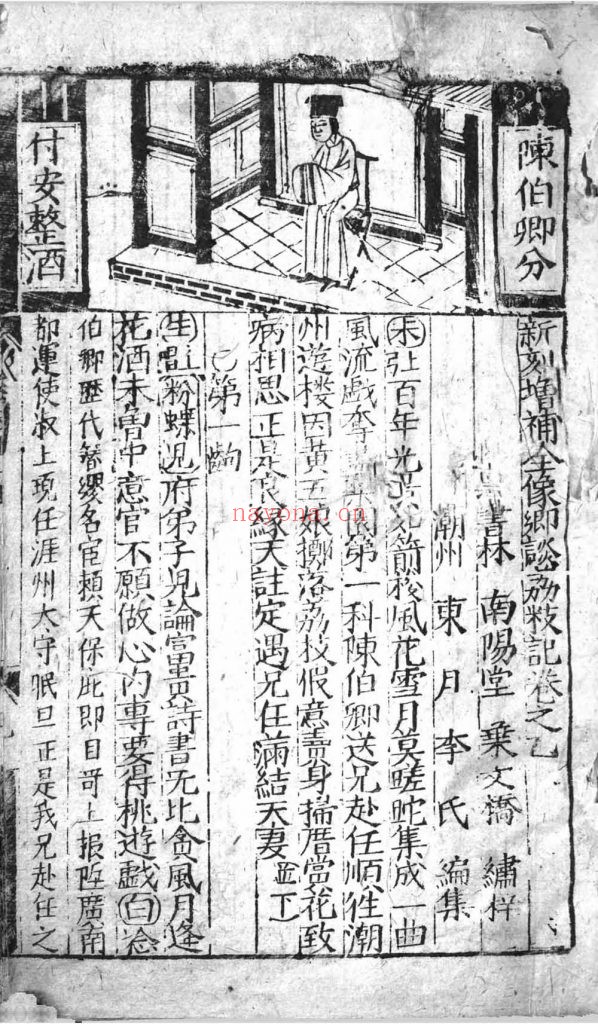 陳伯卿分
付安整酒
新刻增補全像鄉談荔枝記卷之乙
書林 南陽堂 葉文橋 繡梓
潮州 東月李氏 編集
末 百年光景箭梭風花雪月莫蹉跎集成一曲
風流戲 第一科陳伯卿送兄赴任順往潮
州遊樓因黃五娘擲落荔枝假意賣身掃厝當花致
病相思正是良緣天註定遇兄任滿結夫妻 並下
乙第一齣
生唱粉蝶児府弟子児論富貴詩書旡比貪風月逢
花酒未曾中意官不願做心内專要得桃遊戲白念
伯卿歷代簪纓名宦賴天保庇即目哥上报陞廣南
都運使淑上現任涯州太守眠旦正是我兄赴任之
nayona.cn